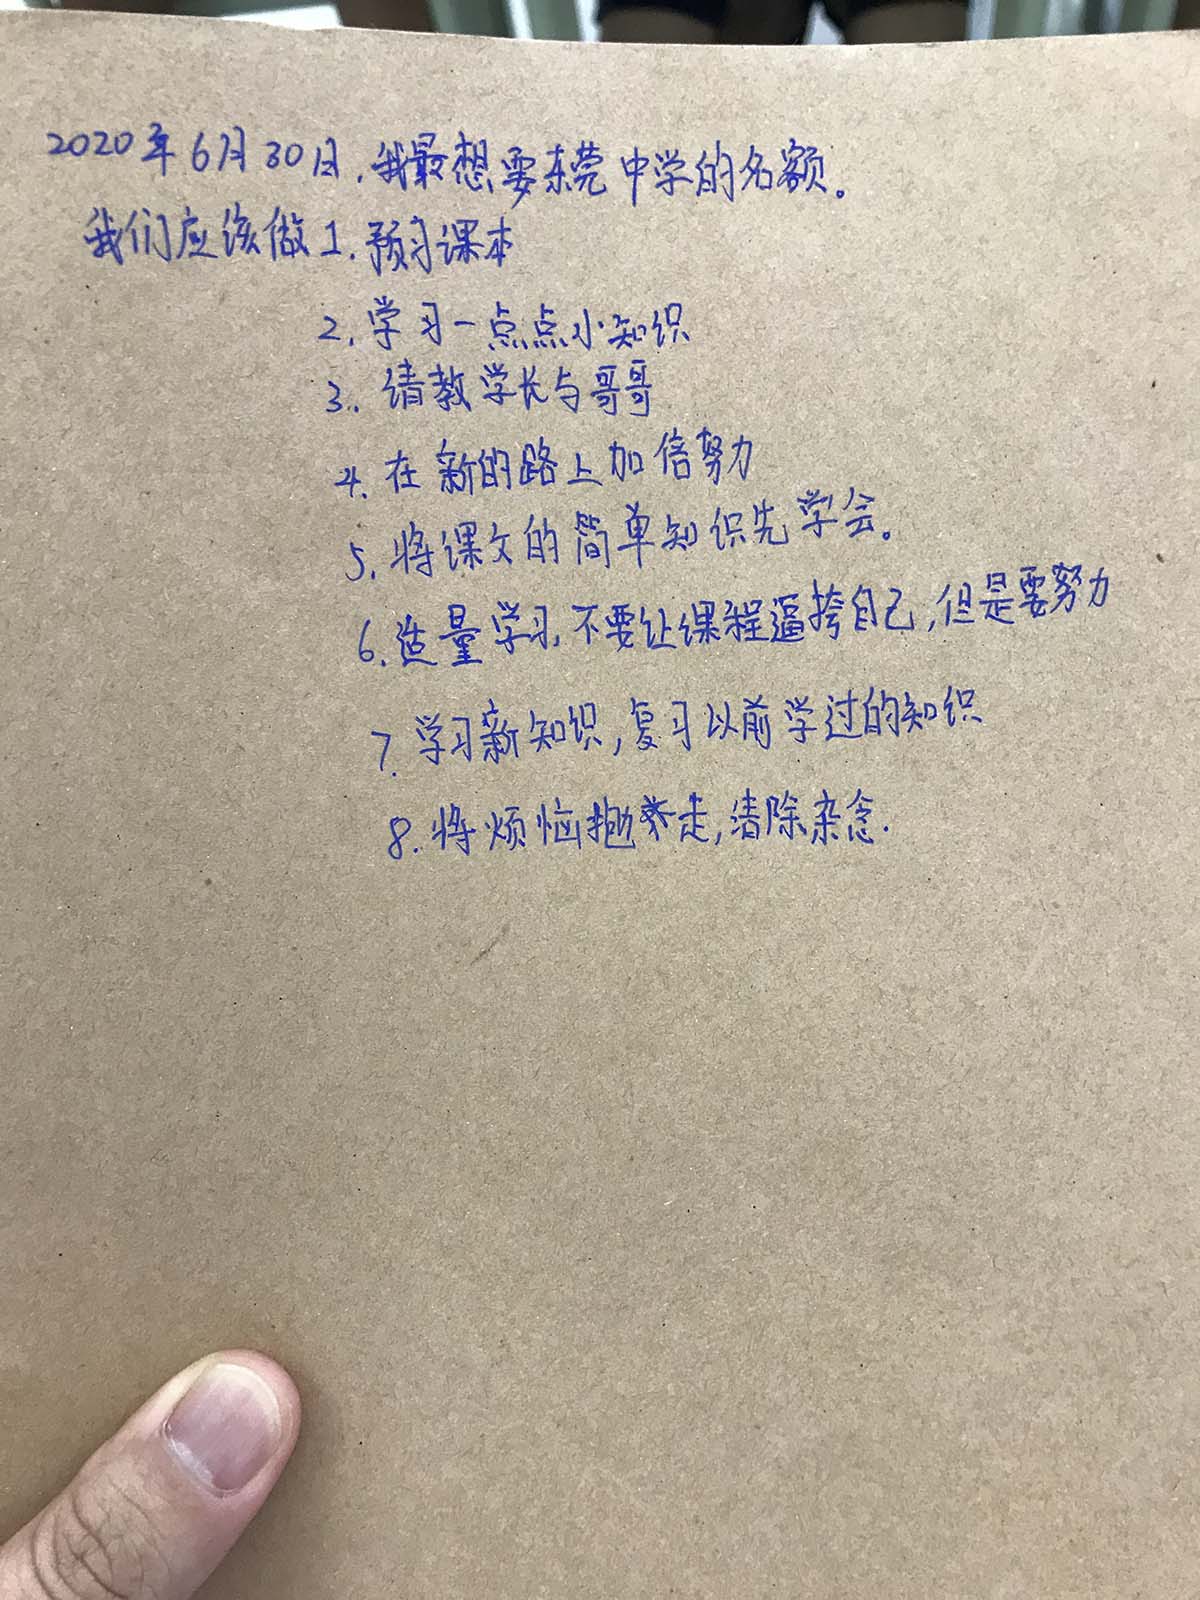 2020年6月30日,我最想要东莞中学的名额。
我们应该做1.预习课本
2.学习一点点小知识
3.请教学长与哥哥
4.在新的路上加倍努力
5.将课文的简单知识先学会。
6.适量学习,不要让课程逼挎自己,但是要努力
7.学习新知识,复习以前学过的知识
8.将烦恼抛走,清除杂念.